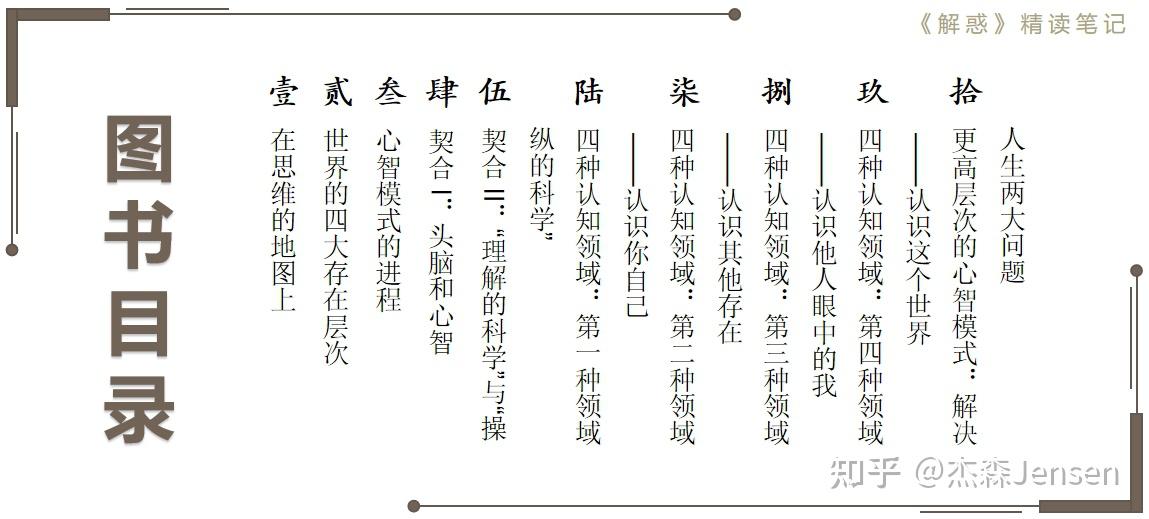 《解惑》精读笔记
图书目录
壹
在思维的地图上
贰
世界的四大存在层次
叁
心智模式的进程
肆
契合 I：头脑和心智
伍
契合 II：“理解的科学”与“操
纵的科学”
陆
四种认知领域：第一种领域
——认识你自己
柒
四种认知领域：第二种领域
——认识其他存在
捌
四种认知领域：第三种领域
——认识他人眼中的我
玖
四种认知领域：第四种领域
——认识这个世界
拾
更高层次的心智模式：解决
人生两大问题
知乎 @杰森Jensen